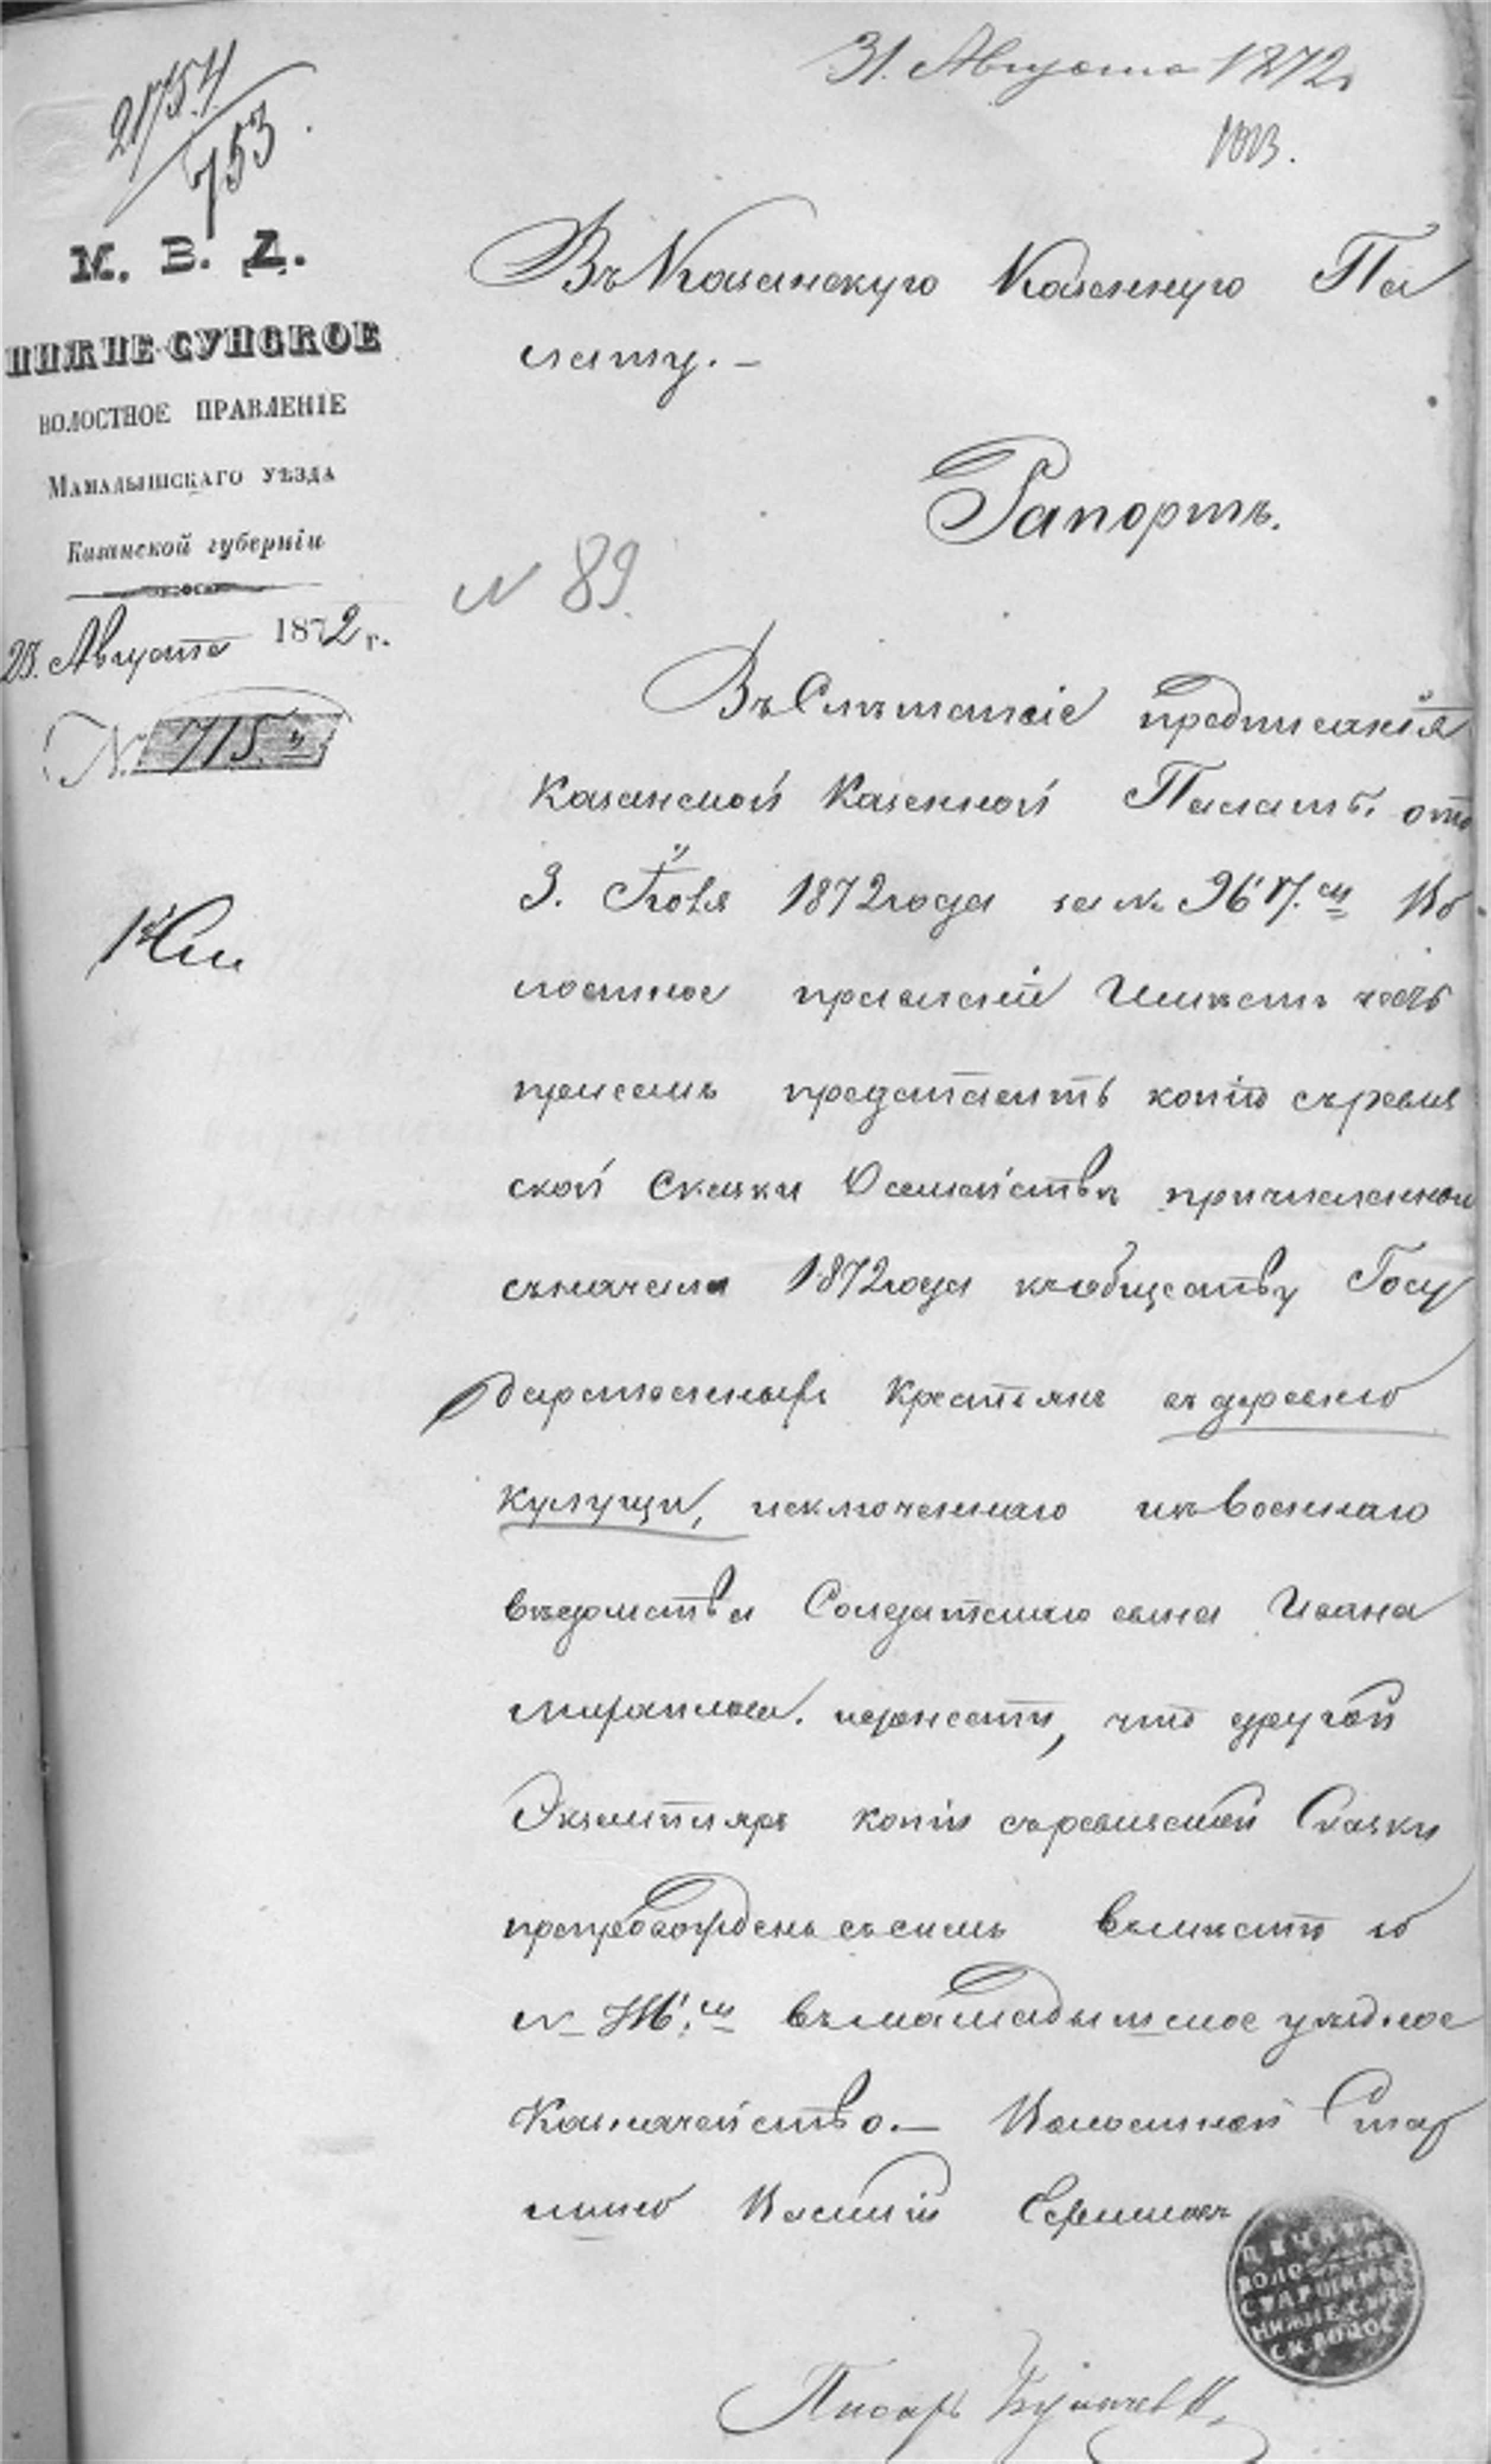 31. Августа 1872
21754/753.
М. В. Д.
НИЖНЕ-СУНСКОЕ
ВОЛОСТНОЕ ПРАВЛЕНІЕ
Мамадышскаго уѣзда
Казанской губерніи
23. Августа 1872 г.
№ 715.
Въ Казанскую Казенную Па
лату. –
Рапортъ.
N 89.
Въ следствіе предписанія
Казанской Казенной Палаты, отъ
3. Іюля 1872 года за №
лостное правленій Имѣетъ честь
присемъ представить копію съревиз
ской Сказки О семействѣ причисленном
съначала 1872 года къобществу Госу
дарственныхъ Крестьянъ въ деревню
Кулущи, исключеннаго изъ Военнаго
вѣдомства Солдатскаго сына Ивана
Михайлова. идонести, что другой
Экземпляръ копіи съревизской Сказки
препровожденъ съ симъ вмѣстѣ
въмамадышское уѣздное
Казначейство. – Волостной Стар
шина Василій Ефимовъ
ПЕЧАТЬ
ВОЛОСТНАГО
СТАРШИНЫ
НИЖНЕ-СУН
СК. ВОЛОС
Писарь